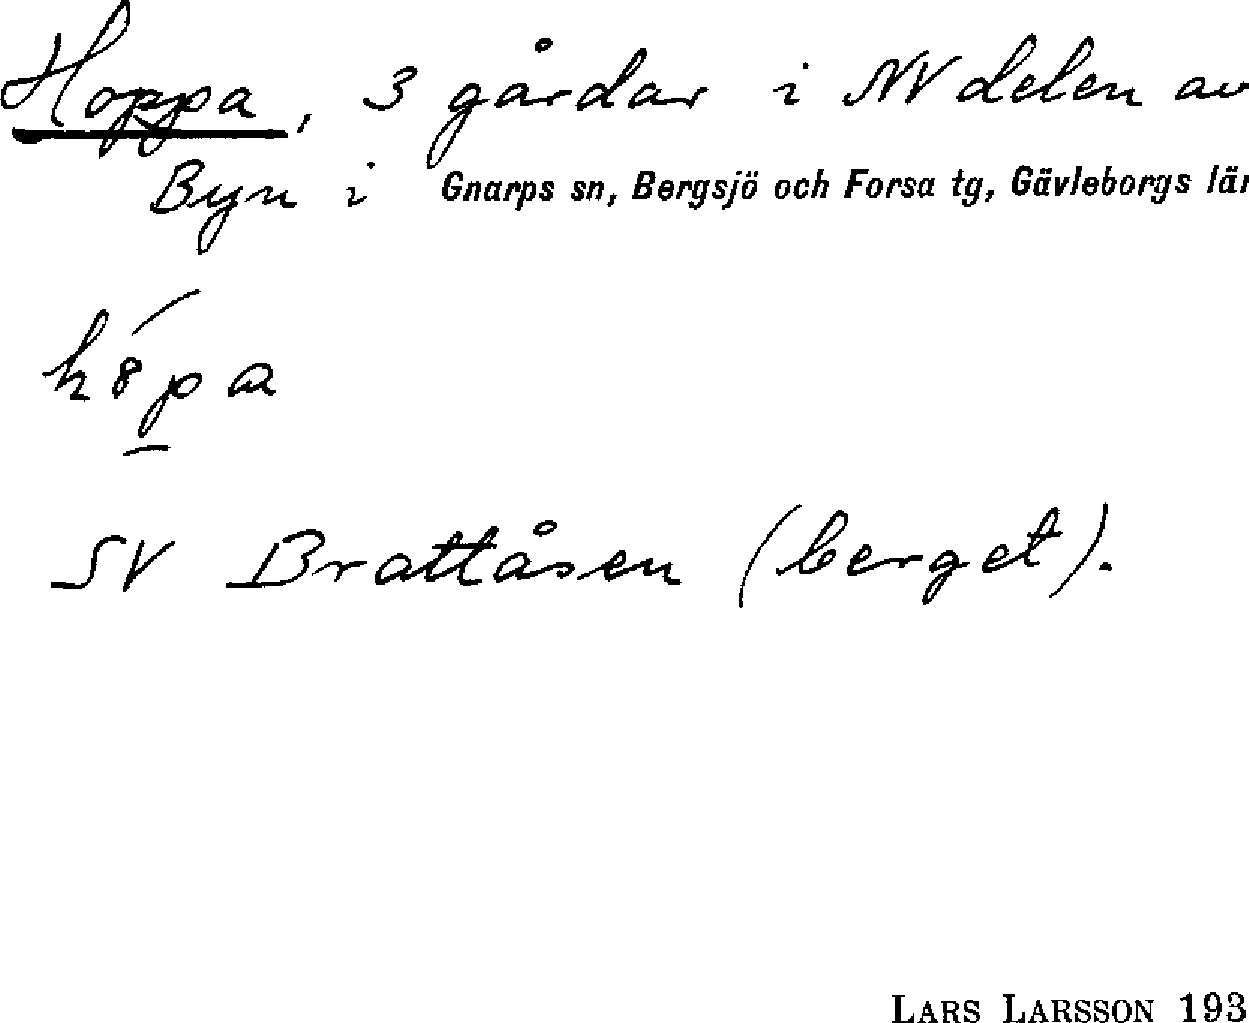 Hoppa, 3 gårdar i NV delen av
Byn i Gnarps sn, Bergsjö och Forsa tg, Gävleborgs län
SV Brattåsen (berget).
LARS LARSSON 193